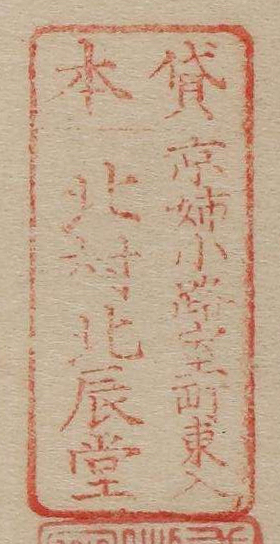 貸本
京姉小路室町東入
北村北辰堂